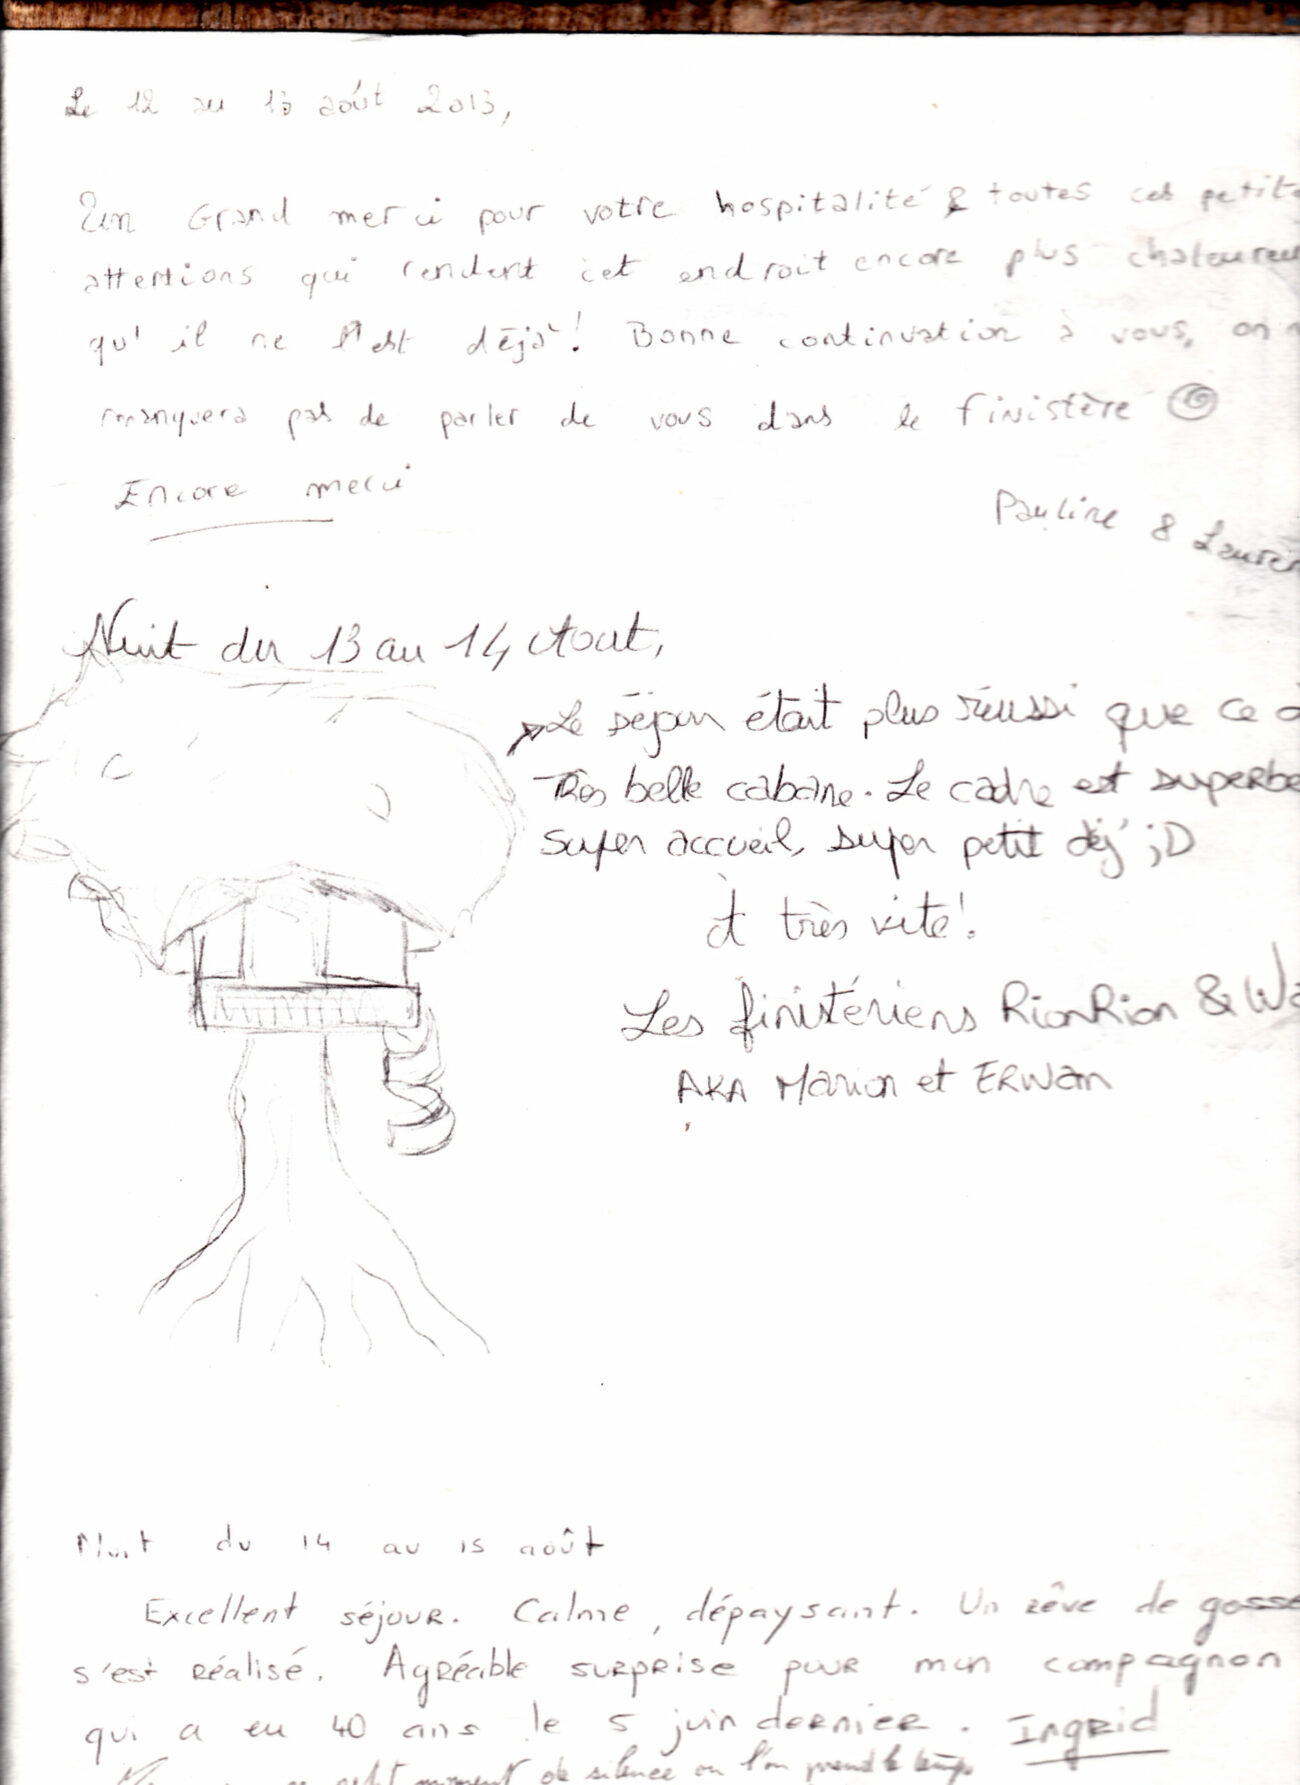 Le 12 au 13 août 2013,
Un Grand merci pour votre hospitalité & toutes ces petites
attentions qui rendent cet endroit encore plus chaleureux
qu'il ne l'est déjà! Bonne continuation à vous, on
manquera pas de parler de vous dans le finistère
Encore merci
Pauline &
Nuit du 13 au 14 Aout,
Le séjour était plus réussi que ce
Très belle cabane. Le cadre est superbe
super accueil, super petit déj' ;D
À très vite!
Les finistériens RionRion &
AKA Marion et ERWan
Nuit du 14 au 15 août
Excellent séjour. Calme, dépaysant. Un rêve de gosse
s'est réalisé. Agréable surprise pour mon compagnon
qui a eu 40 ans le 5 juin dernier. Ingrid
petit moment de silence où l'on prend le temps